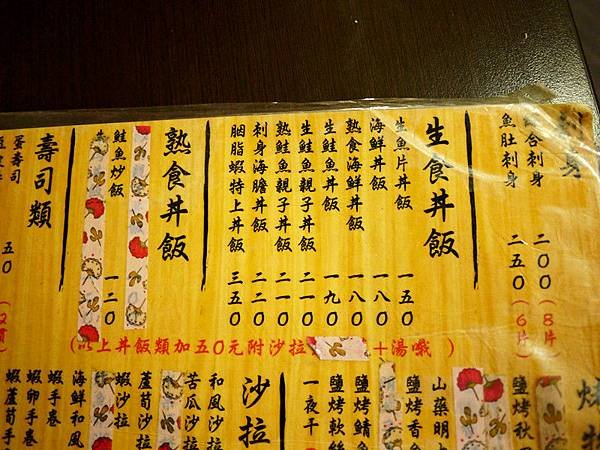 刺身
合刺身 二00 (8片)
魚肚刺身 二五0 (6片)
生食丼飯
生魚片丼飯 一五0
海鮮丼飯 一八0
熟食海鮮丼飯 一八0
生鮭魚丼飯 一九0
生鮭魚親子丼飯 二一0
熟鮭魚親子丼飯 二一0
刺身海膽丼飯 二二0
胭脂蝦特上丼飯 三五0
熟食丼飯
鮭魚炒飯 一二0
壽司類
蛋壽司 五0
(以上丼飯類加五0元附沙拉 +湯 )
烤物
鹽烤秋
山藥明
鹽烤香
鹽烤鯖
鹽烤軟絲
一夜干
沙拉
和風沙拉
苦瓜沙拉
蘆筍沙拉
蝦沙拉
海鮮和風
蝦手卷
蝦卵手卷
蝦蘆筍手